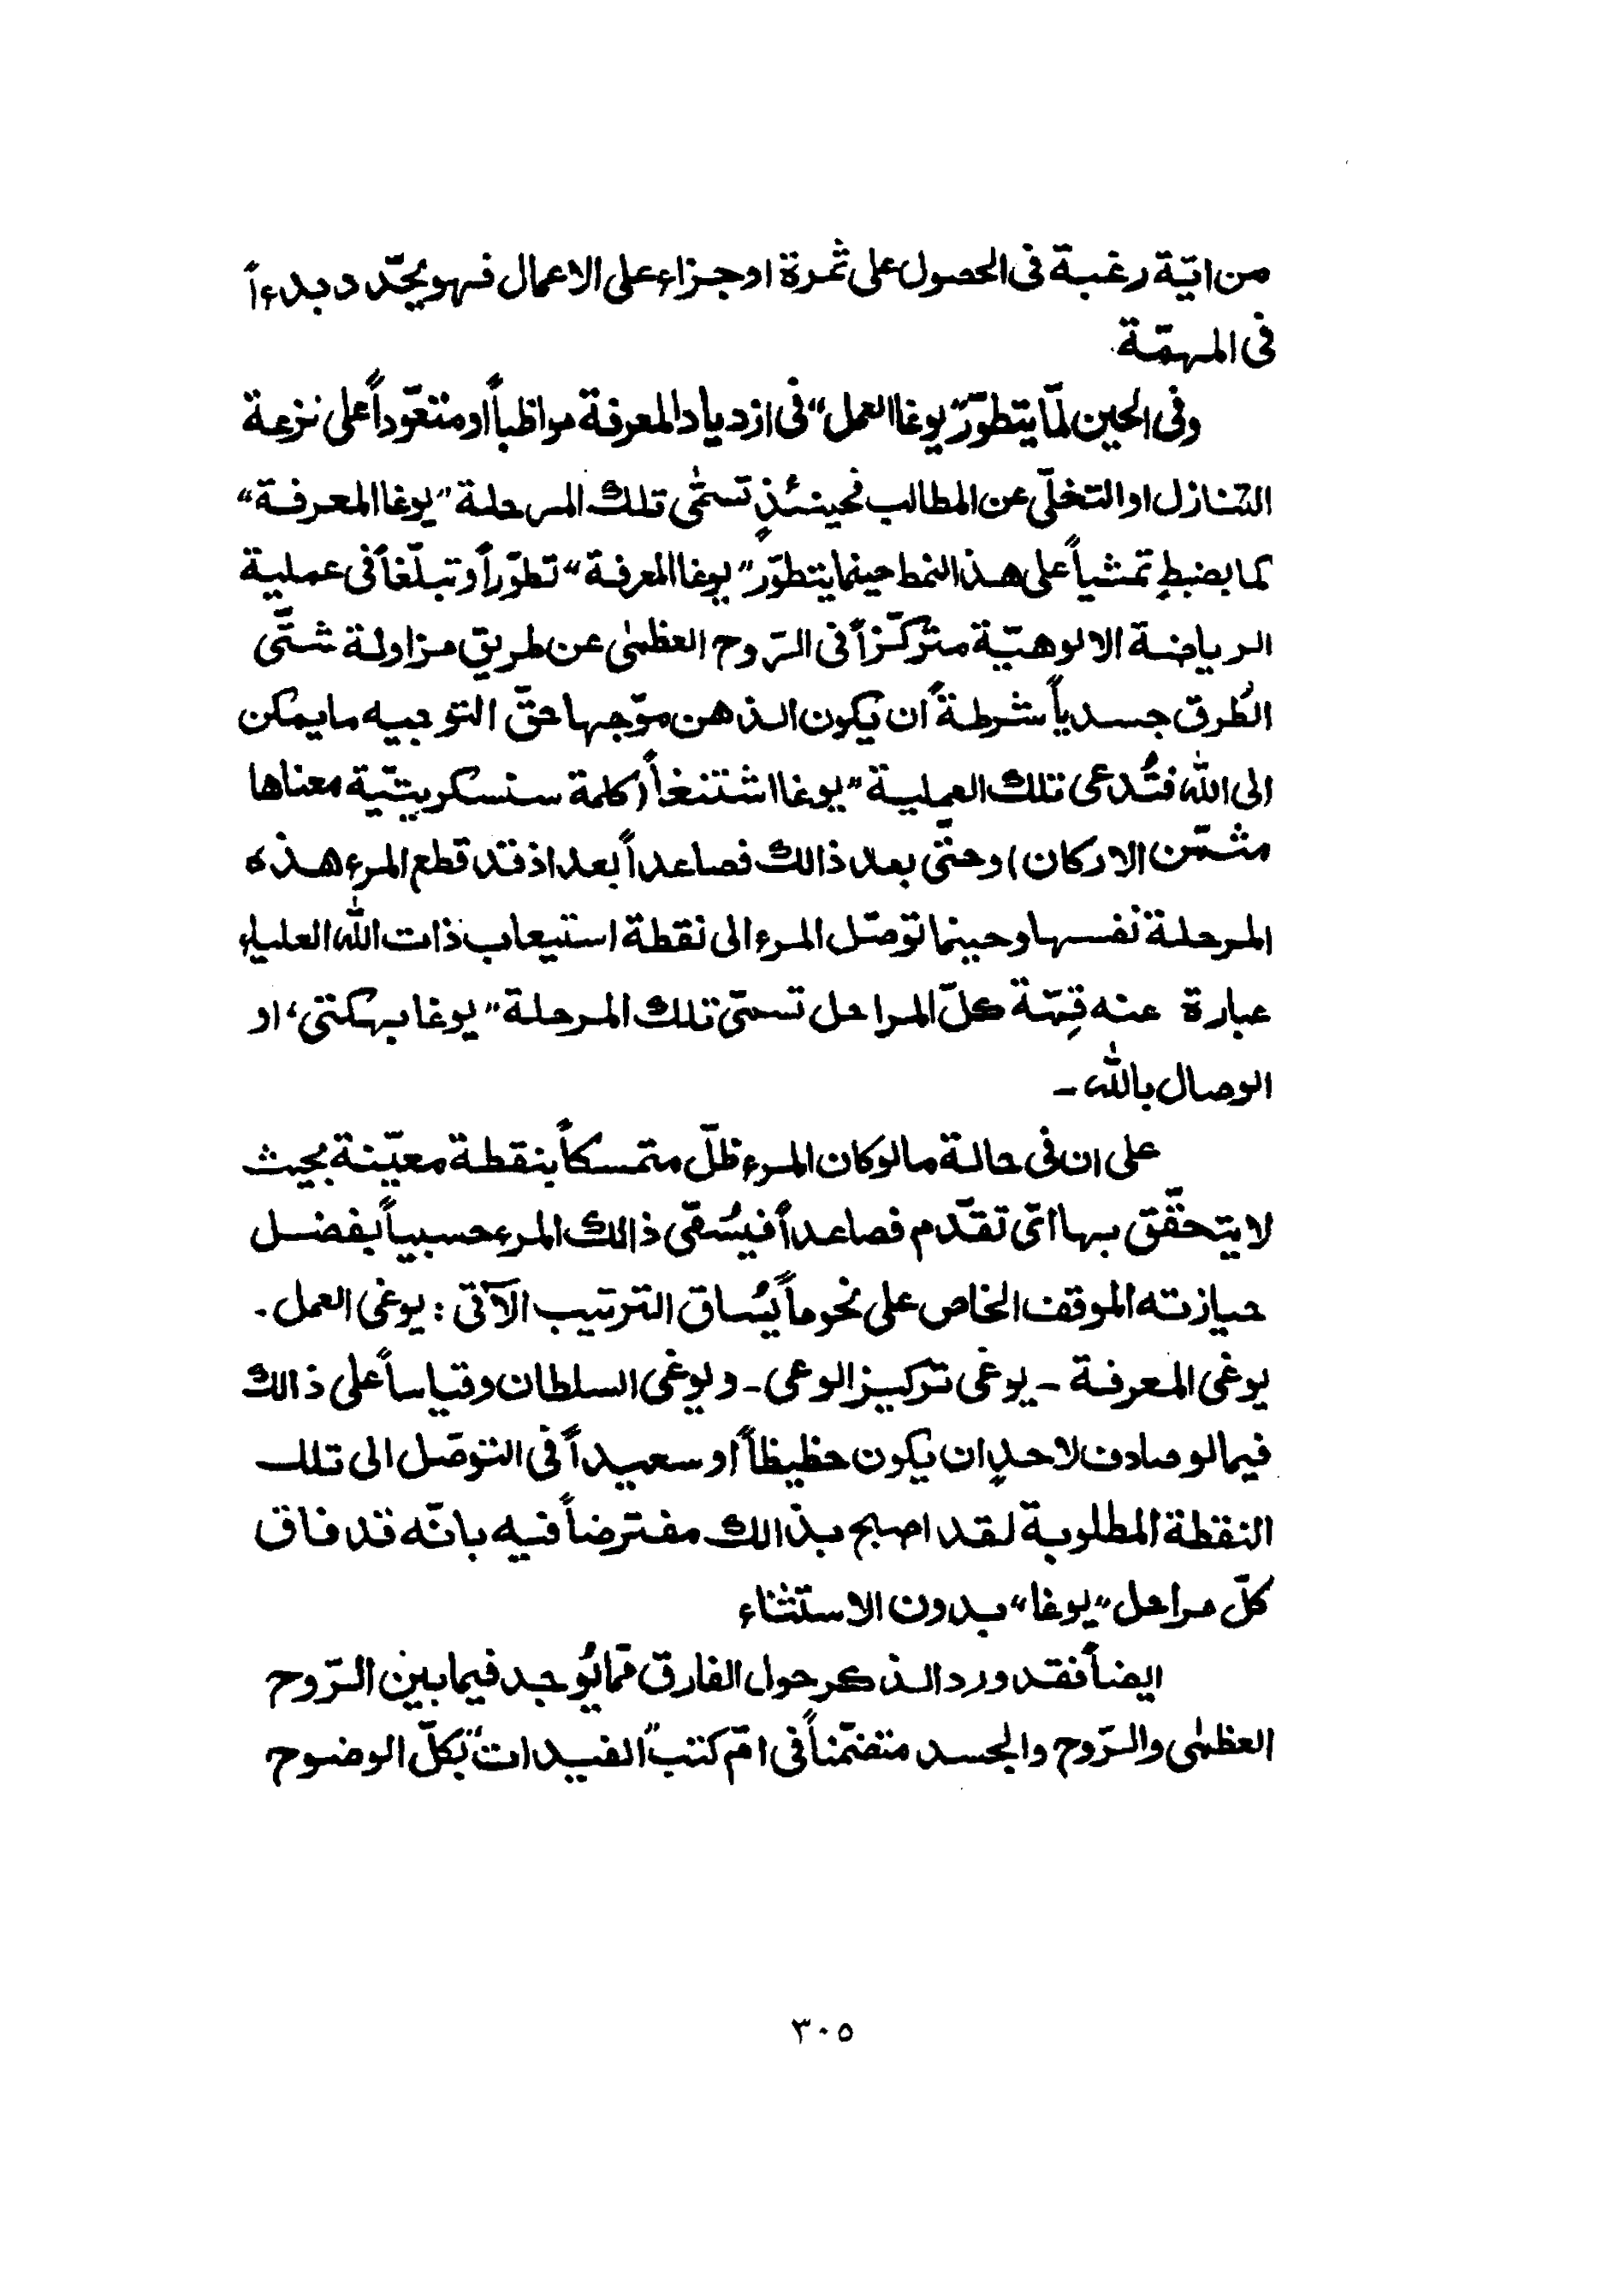 من ايّة رغبة فى الحصول على ثمرة او جزاء على الاعمال فهو يجّدد بدءاً
فى المهمّة
وفى الحين لمّا يتطوّر "يوغا العمل" فى ازدياد المعرفة مواظباً او متعوّداً على نزعة
التنازل او التخلّى عن المطالب فحينئذٍ تسمّٰى تلك المرحلة "يوغا المعرفة"
كما بضبطٍ تمشياً على هذا النمط حينما يتطوّر "يوغا المعرفة" تطوّراً وتبلّغاً فى عملية
الرياضة الالوهيّة متركّزاً فى الرّوح العظمٰى عن طريق مزاولة شتّٰى
الطُرق جسدياً شرطةً ان يكون الذهن موّجها حقّ التوجيه ما يمكن
الى اللّٰه فتُدعى تلك العملية "يوغا اشتنغاً (كلمة سنسكريتيّة معناها
مثمّن الاركان) وحتّٰى بعد ذالك فصاعداً بعد اذ قد قطع المرء هذه
المرحلة نفسها وحينما توصّل المرء الى نقطة استيعاب ذات اللّٰه العلياء
عبارة عنه قِمّة كلّ المراحل تسمّى تلك المرحلة "يوغا بهكتى، او
الوصال باللّٰه –
على ان فى حالة ما لو كان المرء ظلّ متمسكاً بنقطة معيّنة بحيث
لا يتحقّق بها اىّ تقدّم فصاعداً فيسُمّى ذالك المرء حسبياً بفضل
حيازته الموقف الخاص على نحو ماً يُساق الترتيب الآتى : يوغى العمل .
يوغى المعرفة – يوغى تركيز الوعى – ويوغى السلطان وقياساً على ذالك
فيما لو صادف لاحدٍ ان يكون حظيظاً او سعيداً فى التوصّل الى تلك
النقطة المطلوبة لقد اصبح بذالك مفترضاً فيه بانّه قد فاق
كلّ مراحل "يوغا" بدون الاستثناء
ايضاً فقد ورد الذكر حول الفارق ممّا يُوجد فيما بين الرّوح
العظمٰى والرّوح والجسد متضمّناً فى امّ كتب "الفيدات" بكلّ الوضوح
٣٠٥